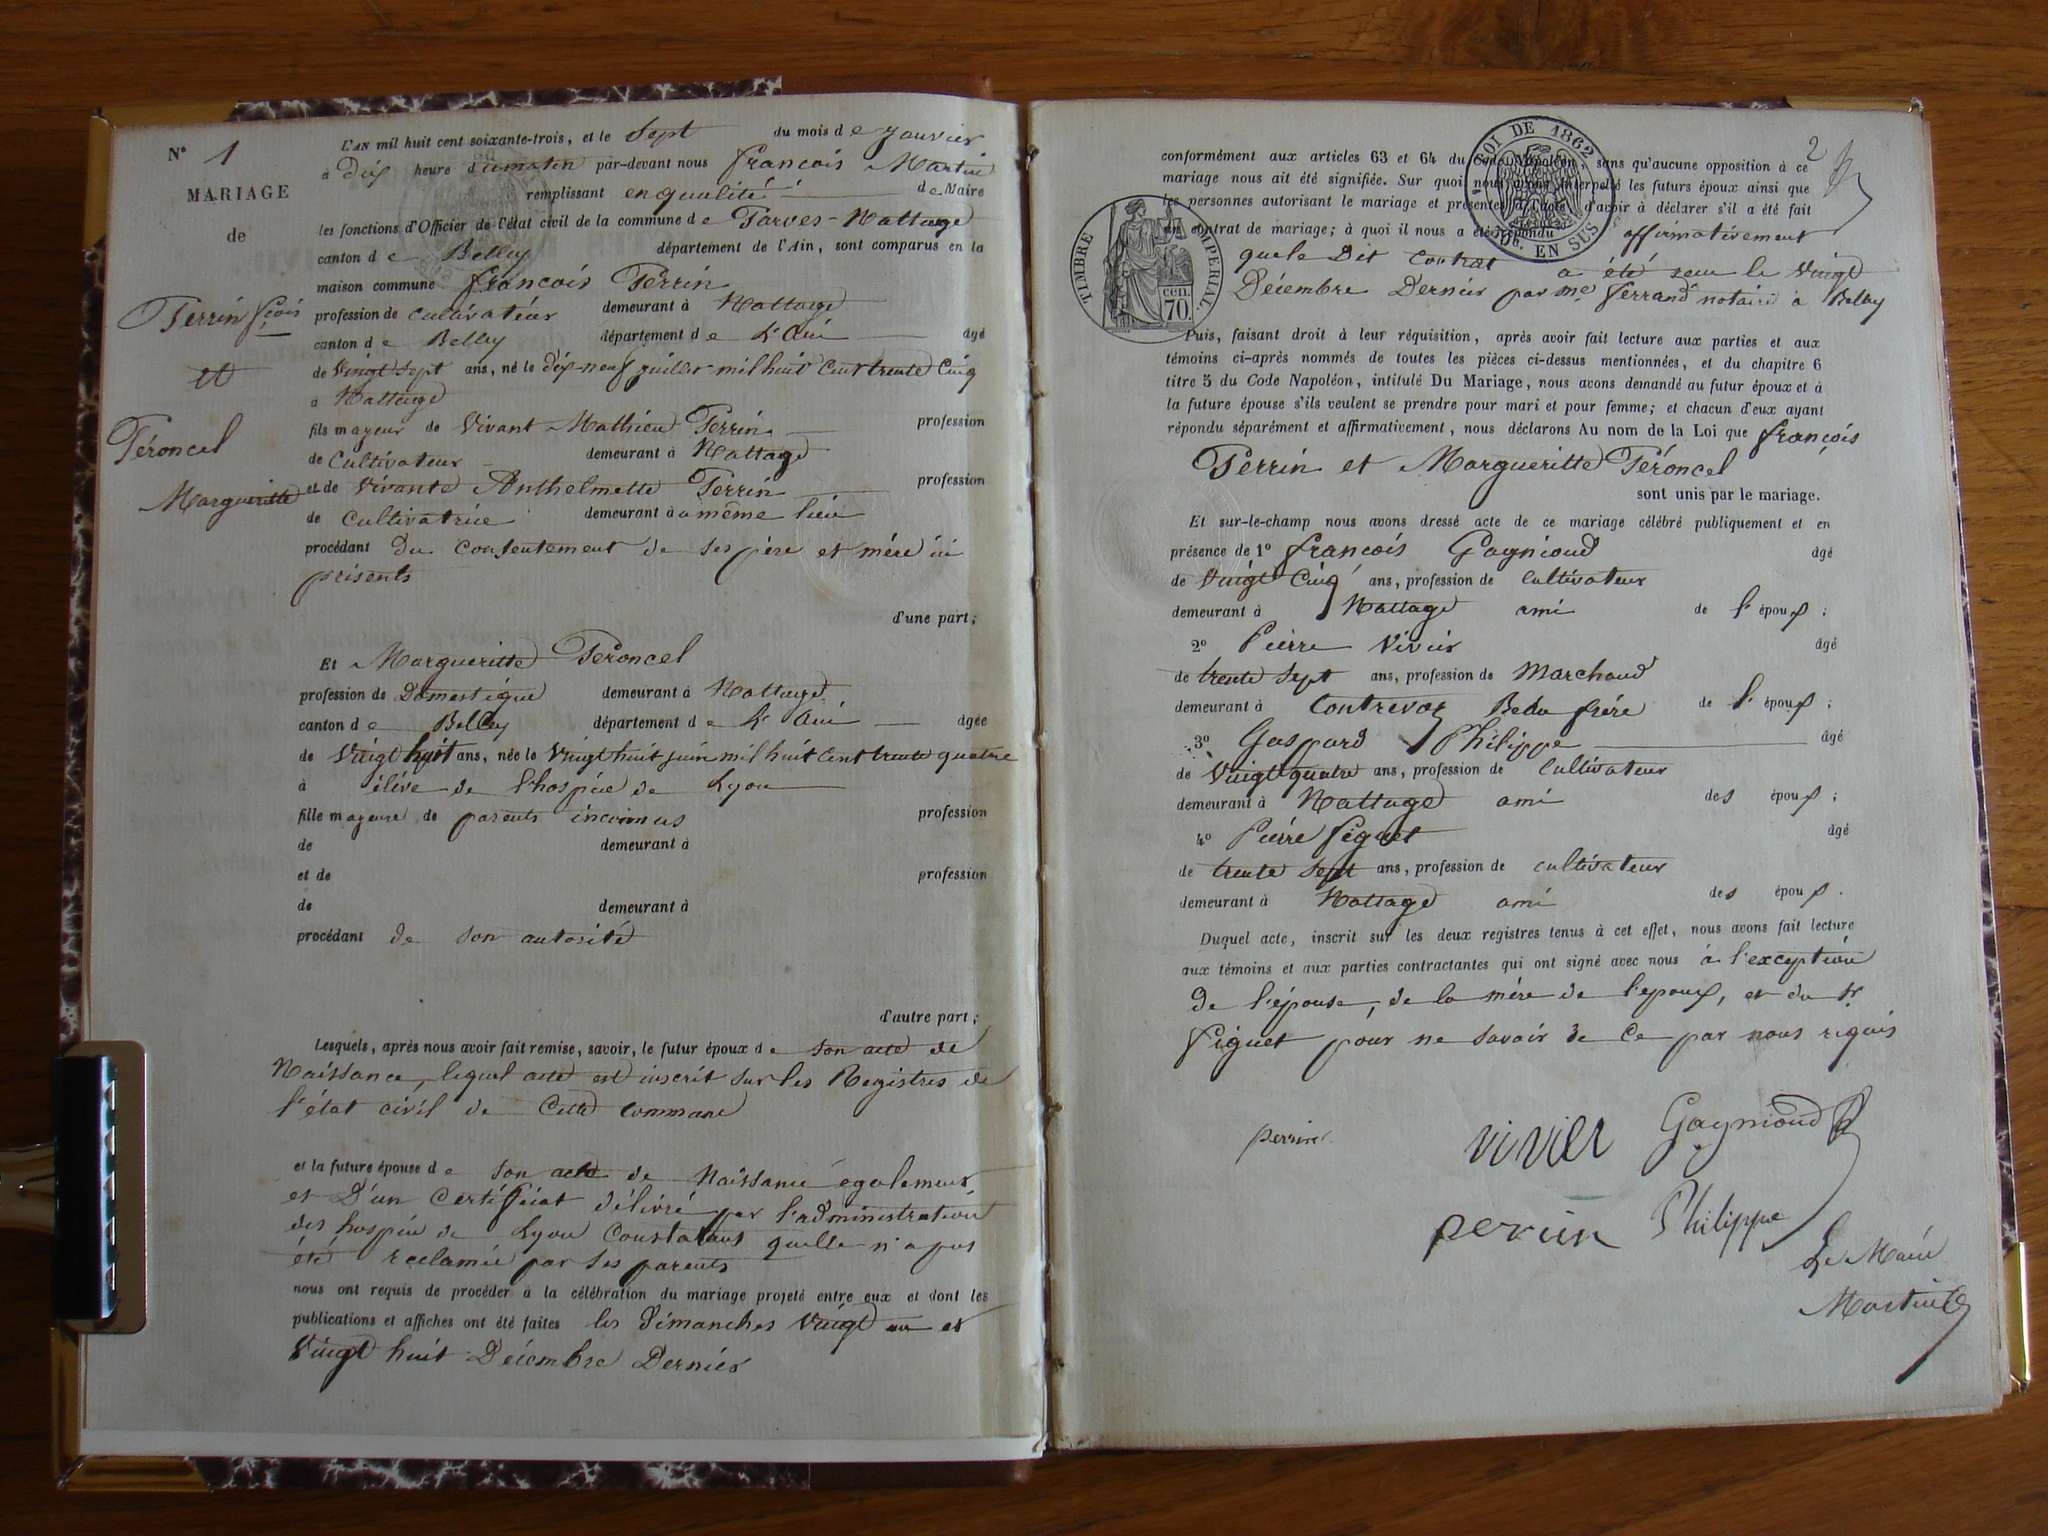 N° 1
MARIAGE
de
Perrin fçois
et
Péroncel
Margueritte
L'AN mil huit cent soixante-trois, et le Sept du mois de Janvier
à Dix heure du matin par-devant nous francois Martin
remplissant en qualité de Maire
les fonctions d'Officier de l'état civil de la commune de Parves-Nattage
canton de Belley département de l'Ain, sont comparus en la
maison commune francois Perrin
profession de cultivateur demeurant à Nattage
canton de Belley département de L'Ain âgé
de Vingt sept ans, né le dix-neuf juillet mil huit Cent trente Cinq
à Nattage
fils mayeur de Vivant Mathieu Perrin profession
de Cultivateur demeurant à Nattage
et de Vivante Anthelmette Perrin profession
de Cultivatrice demeurant à même lieu
procédant Du consentement de ses père et mére ici
présents
d'une part;
Et Margueritte Péroncel
profession de Domestique demeurant à Nattage
canton de Belley département de L'Ain âgée
de Vingt huit ans, née le Vingt huit juin mil huit Cent trente quatre
à éléve de l'hospice de Lyon
fille mayeure de parents inconnus profession
de demeurant à
et de profession
de demeurant à
procédant de son autorité
d'autre part;
Lesquels, après nous avoir fait remise, savoir, le futur époux de son acte de
Naissance, lequel acte est inscrit sur les Registres de
l'état civil de Cette commune
et la future épouse de son acte de Naissance également
et D'un Certificat délivré par l'administration
des hospice de Lyon Constatant quelle n'a pas
été réclamée par ses parents
nous ont requis de procéder à la célébration du mariage projeté entre eux et dont les
publications et affiches ont été faites les dimanches Vingt un et
Vingt huit Décembre Dernier
2
LOI DE 1862
2 De. EN SUS
TIMBRE IMPERIAL
70 cen.
conformément aux articles 63 et 64 du Code Napoléon, sans qu'aucune opposition à ce
mariage nous ait été signifiée. Sur quoi nous avons interpellé les futurs époux ainsi que
les personnes autorisant le mariage et présentes à l'acte d'avoir à déclarer s'il a été fait
un contrat de mariage; à quoi il nous a été répondu affirmativement
que le Dit contrat a été recu le Vingt
Décembre Dernier par me Ferrand notaire à Belley
Puis, faisant droit à leur réquisition, après avoir fait lecture aux parties et aux
témoins ci-après nommés de toutes les pièces ci-dessus mentionnées, et du chapitre 6
titre 5 du Code Napoléon, intitulé Du Mariage, nous avons demandé au futur époux et à
la future épouse s'ils veulent se prendre pour mari et pour femme; et chacun d'eux ayant
répondu séparément et affirmativement, nous déclarons Au nom de la Loi que françois
Perrin et Margueritte Péroncel
sont unis par le mariage.
Et sur-le-champ nous avons dressé acte de ce mariage célébré publiquement et en
présence de 1° francois Gaynioud âgé
de Vingt Cinq ans, profession de Cultivateur
demeurant à Nattage ami de l'époux;
2° Pierre Vivier âgé
de trente sept ans, profession de Marchand
demeurant à Contrevoz Beau frére de l'époux;
3° Gaspard Philippe âgé
de Vingt quatre ans, profession de Cultivateur
demeurant à Nattage ami des époux;
4° Pierre Piguet âgé
de trente sept ans, profession de cultivateur
demeurant à Nattage ami des époux.
Duquel acte, inscrit sur les deux registres tenus à cet effet, nous avons fait lecture
aux témoins et aux parties contractantes qui ont signé avec nous à l'exception
de l'épouse, de la mére de l'epoux, et du Sr
Piguet pour ne savoir de Ce par nous requis
perrin vivier Gaynioud
perrin Philippe
Le Maire
Martin